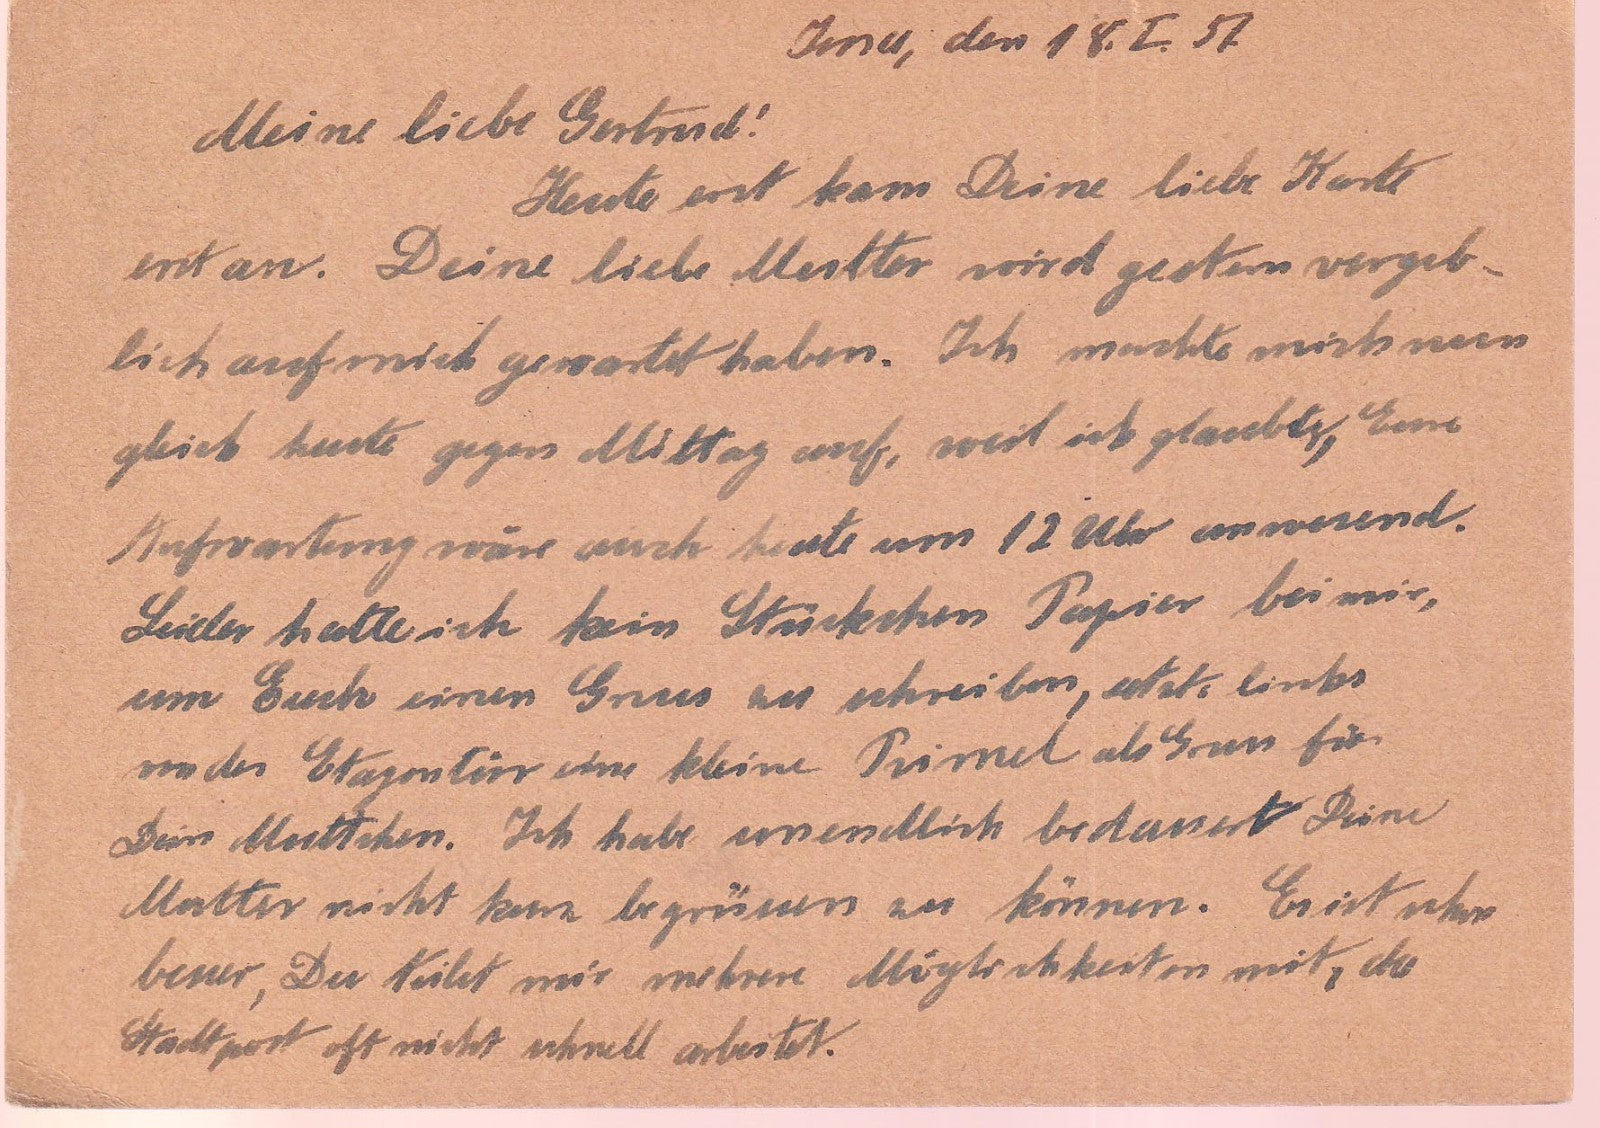 Jena, den 18.I.51
Meine liebe Gertrud!
Heute erst kam Deine liebe Karte
erst an. Deine liebe Mutter wird gestern vergeb-
lich auf mich gewartet haben. Ich machte mich nun
gleich heute gegen Mittag auf, weil ich glaubte, Eure
Aufwartung wäre auch heute um 12 Uhr anwesend.
Leider hatte ich kein Stückchen Papier bei mir,
um Euch einen Gruss zu schreiben, setzte links
von der Etagentür eine kleine Primel als Gruss für
Dein Muttchen. Ich habe unendlich bedauert Deine
Mutter nicht kurz begrüssen zu können. Es ist schon
besser, Du teilst mir mehrere Möglichkeiten mit, da
Stadtpost oft nicht schnell arbeitet.